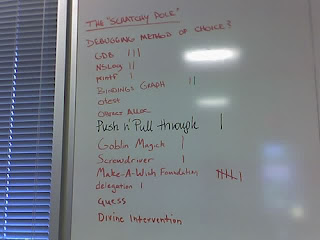 THE "SCRATCHY POLE"
DEBUGGING METHOD OF CHOICE?
GDB |||
NSLog ||
printf |
BINDINGS GRAPH ||
otest
OBJECT ALLOC
Push n' Pull through |
Goblin Magick |
Screwdriver |
Make-A-Wish Foundation |||| |
delegation |
Guess
Divine Intervention